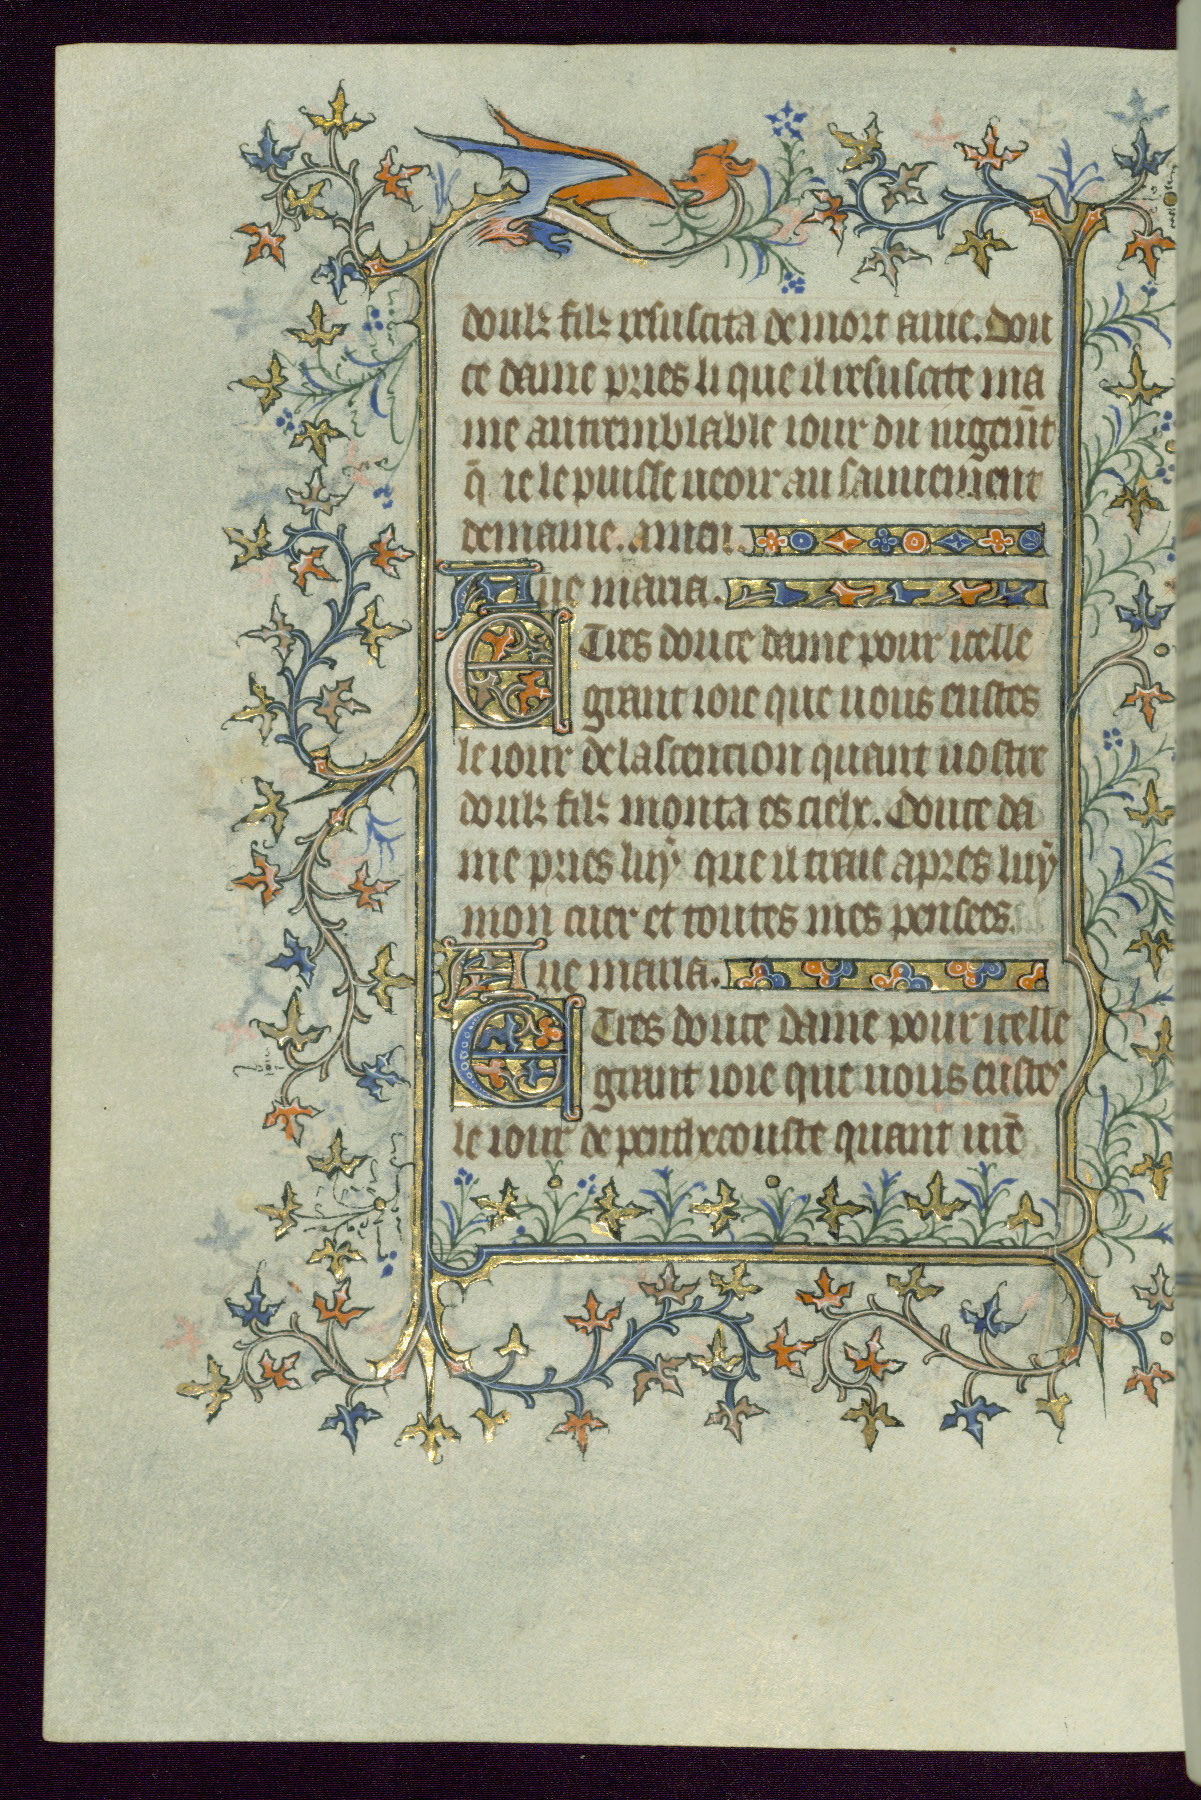 doulz filz resuscita de mort a uie. Dou
ce dame pries li que il resuscite ma
me au tremblable iour du iugem̄t
q̄ ie le puisse ueoir au sauuement
de mame. amen.
Aue maria.
E Tres douce dame pour icelle
grant ioie que uous eustes
le iour de lascencion quant uostre
doulz filz monta es cielx. Douce da
me pries luy que il traie apres luy
mon cuer et toutes mes pensees.
Aue maria.
E Tres douce dame pour icelle
grant ioie que uous eustes
le iour de penthecouste quant ur̄e